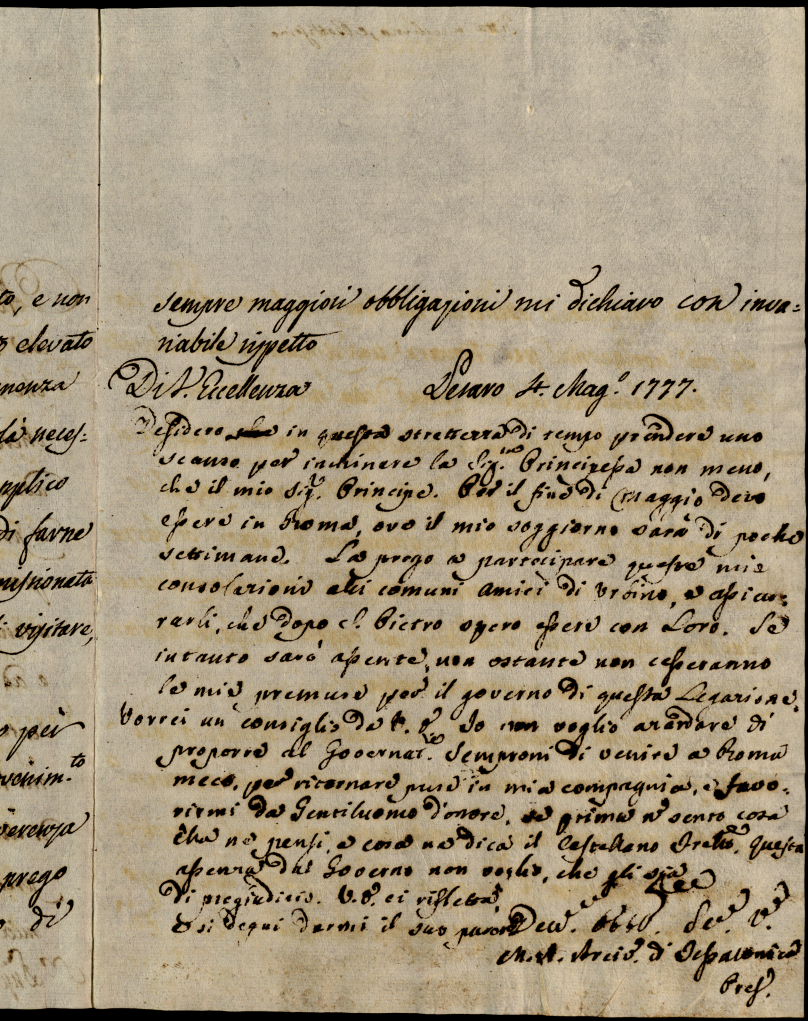 to, e non
elevato
nenza
là neces-
mplico
di farne
missionata
visitare,
o per
venim.to
verenza
prego
di
sempre maggiori obbligazioni mi dichiaro con inva=
riabile rispetto
Di V. Eccellenza Pesaro 4. Mag.o 1777.
Desidero in questa strettezza di tempo prendere uno
scanso per inchinare la Sig.ra Principessa non meno,
che il mio Sig.r Principe. Per il fine di Maggio devo
essere in Roma, ove il mio soggiorno sarà di poche
settimane. La prego a partecipare queste mie
consolazioni alli comuni Amici di Urbino, e assicu=
rarli, che dopo S. Pietro spero essere con Loro. Se
intanto sarò assente, non ostante non cesseranno
le mie premure per il governo di questa Legazione.
Vorrei un consiglio da V. E. Io non voglio azardare di
proporre al Governat.re Semproni di venire a Roma
meco, per ritornare pure in mia compagnia, e favo=
rirmi da Gentiluomo d'onore, se prima non sento cosa
Ella ne pensi, e cosa ne dica il Castellano. Questa
assenza dal Governo non voglio, che gli sia
di pregiudizio. V. E. ci rifletta
e si degni darmi il suo parere Dev.o Obb.o Se.re V.o
M. A. Arciv.o di Tessalonica
Pres.